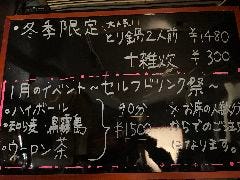 ・冬季限定 大人気!! とり鍋2人前 ¥1,480
+雑炊 ¥300
1月のイベント〜セルフドリンク祭〜
・ハイボール
・和ら麦 黒霧島
・ウーロン茶
90分
¥1500
※お席の人数分
からでのご注文
になります。